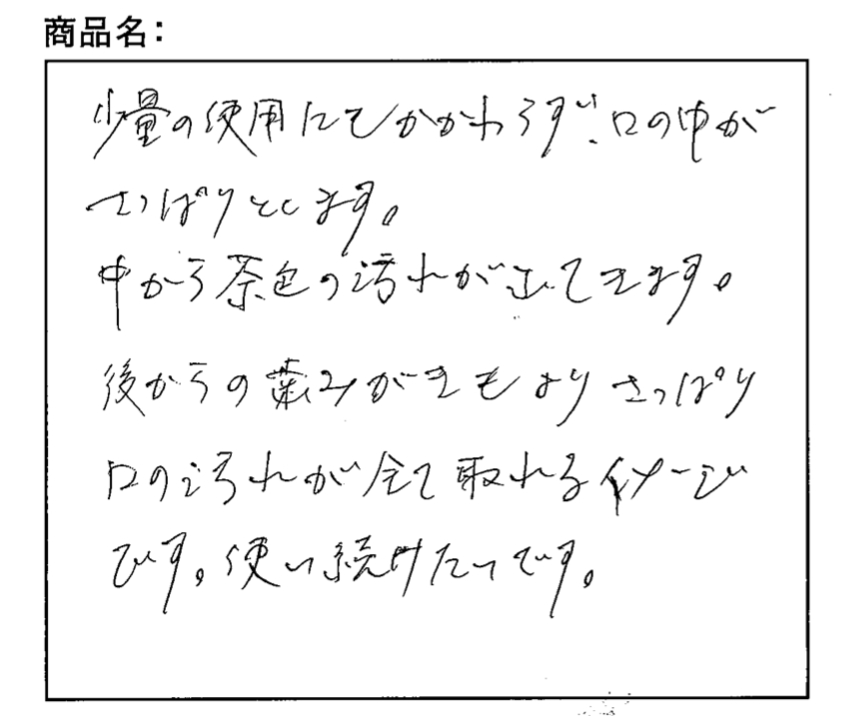 商品名：
少量の使用にもかかわらず、口の中が
さっぱりとします。
中から茶色の汚れが出てきます。
後からの歯みがきもよりさっぱり
口の汚れが全て取れるイメージ
です。使い続けたいです。